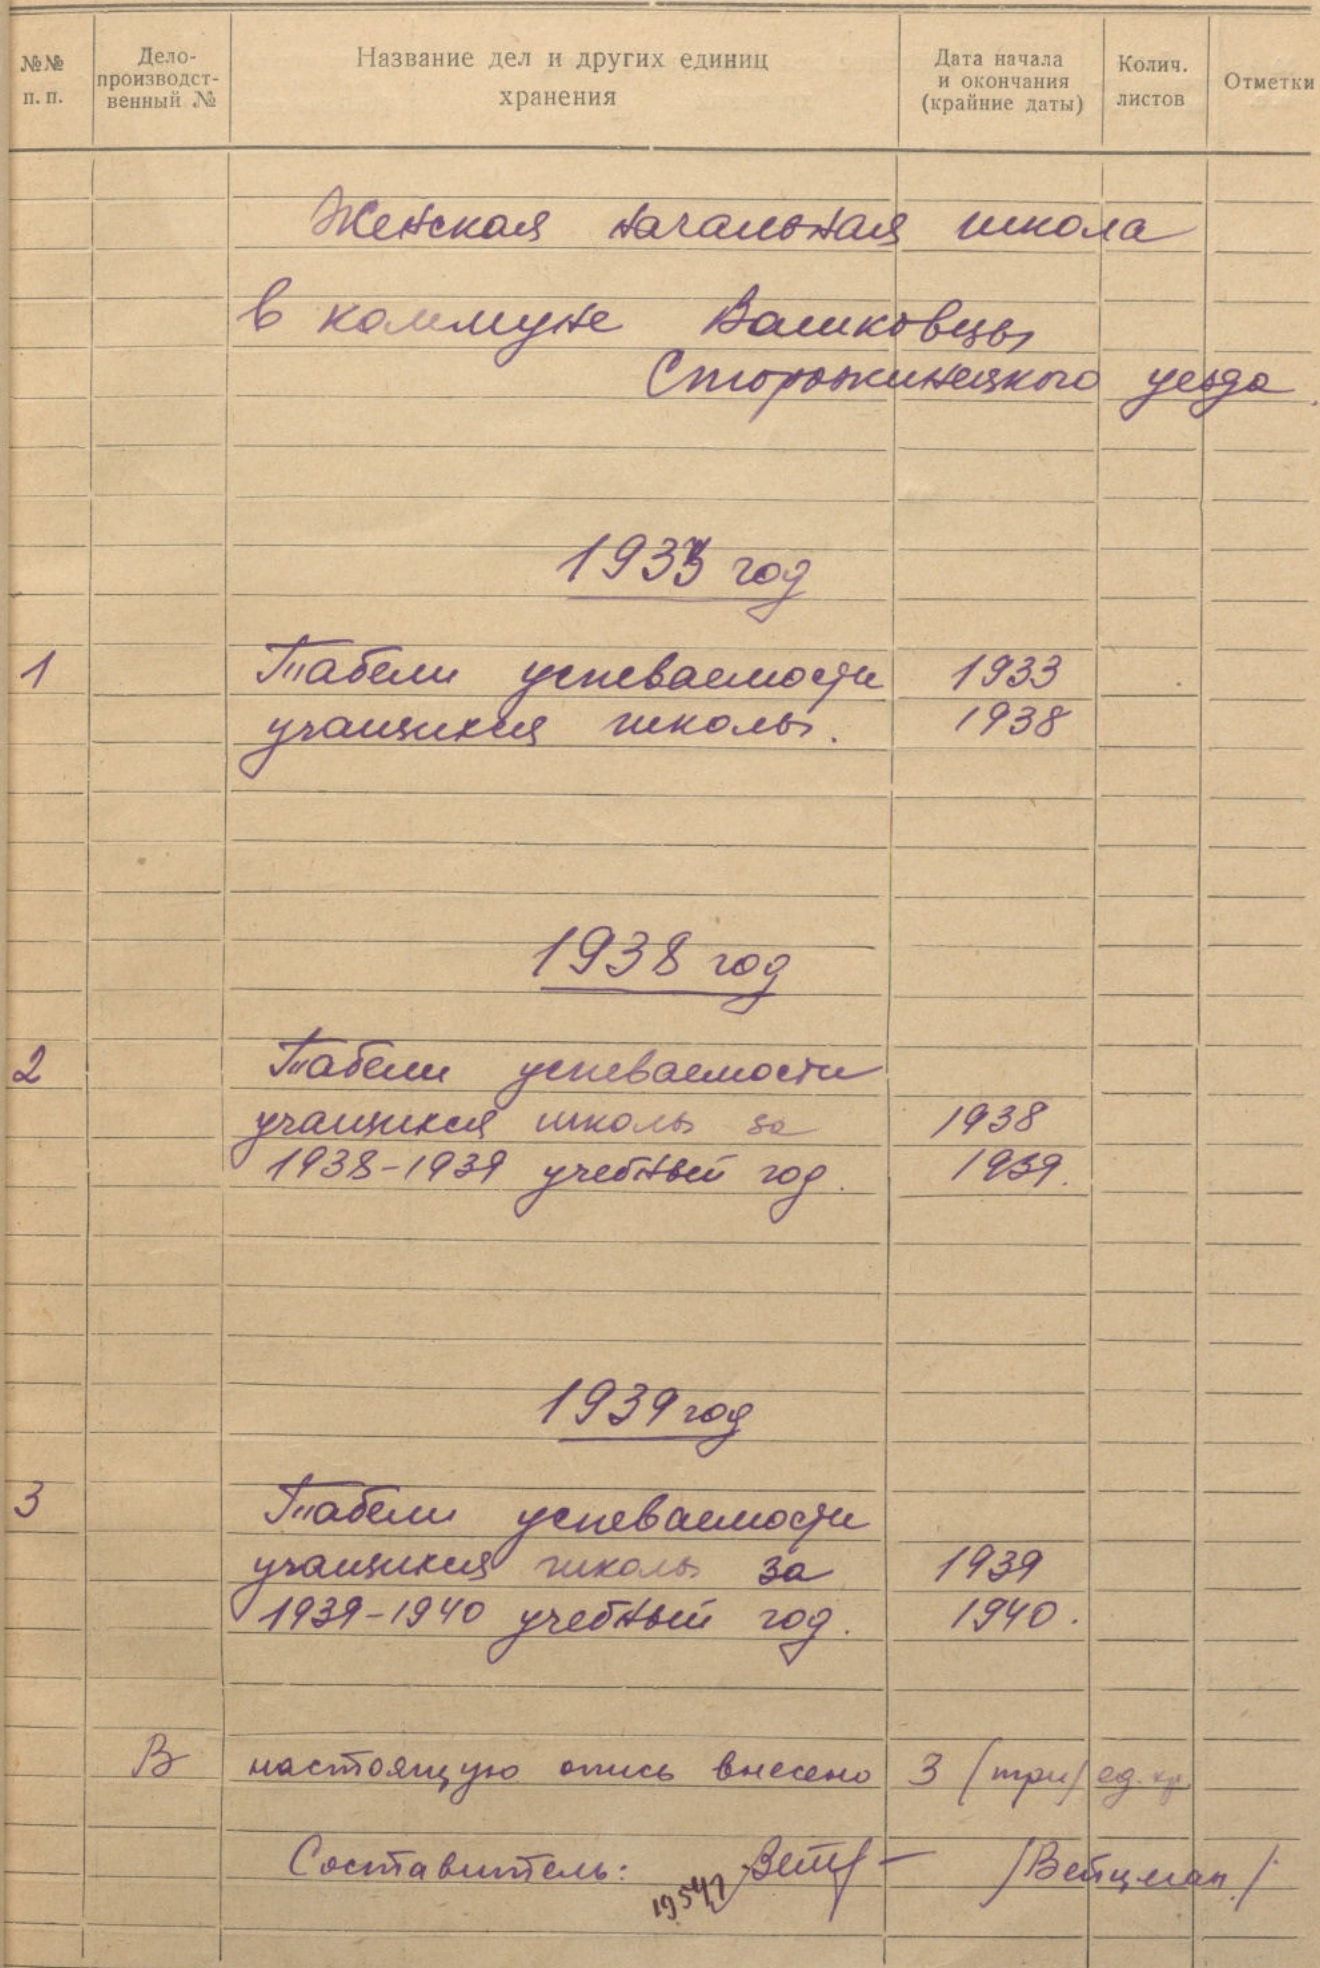 №№ п. п.
Дело-
производст-
венный №
Название дел и других единиц
хранения
Дата начала
и окончания
(крайние даты)
Колич.
листов
Отметки
Женская начальная школа
в коммуне Вашковцы
Сторожинецкого уезда.
1933 год
1 Табели успеваемости 1933
учащихся школы. 1938
1938 год
2 Табели успеваемости
учащихся школы за 1938
1938-1939 учебный год. 1939.
1939 год
3 Табели успеваемости
учащихся школы за 1939
1939-1940 учебный год. 1940.
В настоящую опись внесено 3 /три/ ед. хр.
Составитель: /Вейцман/